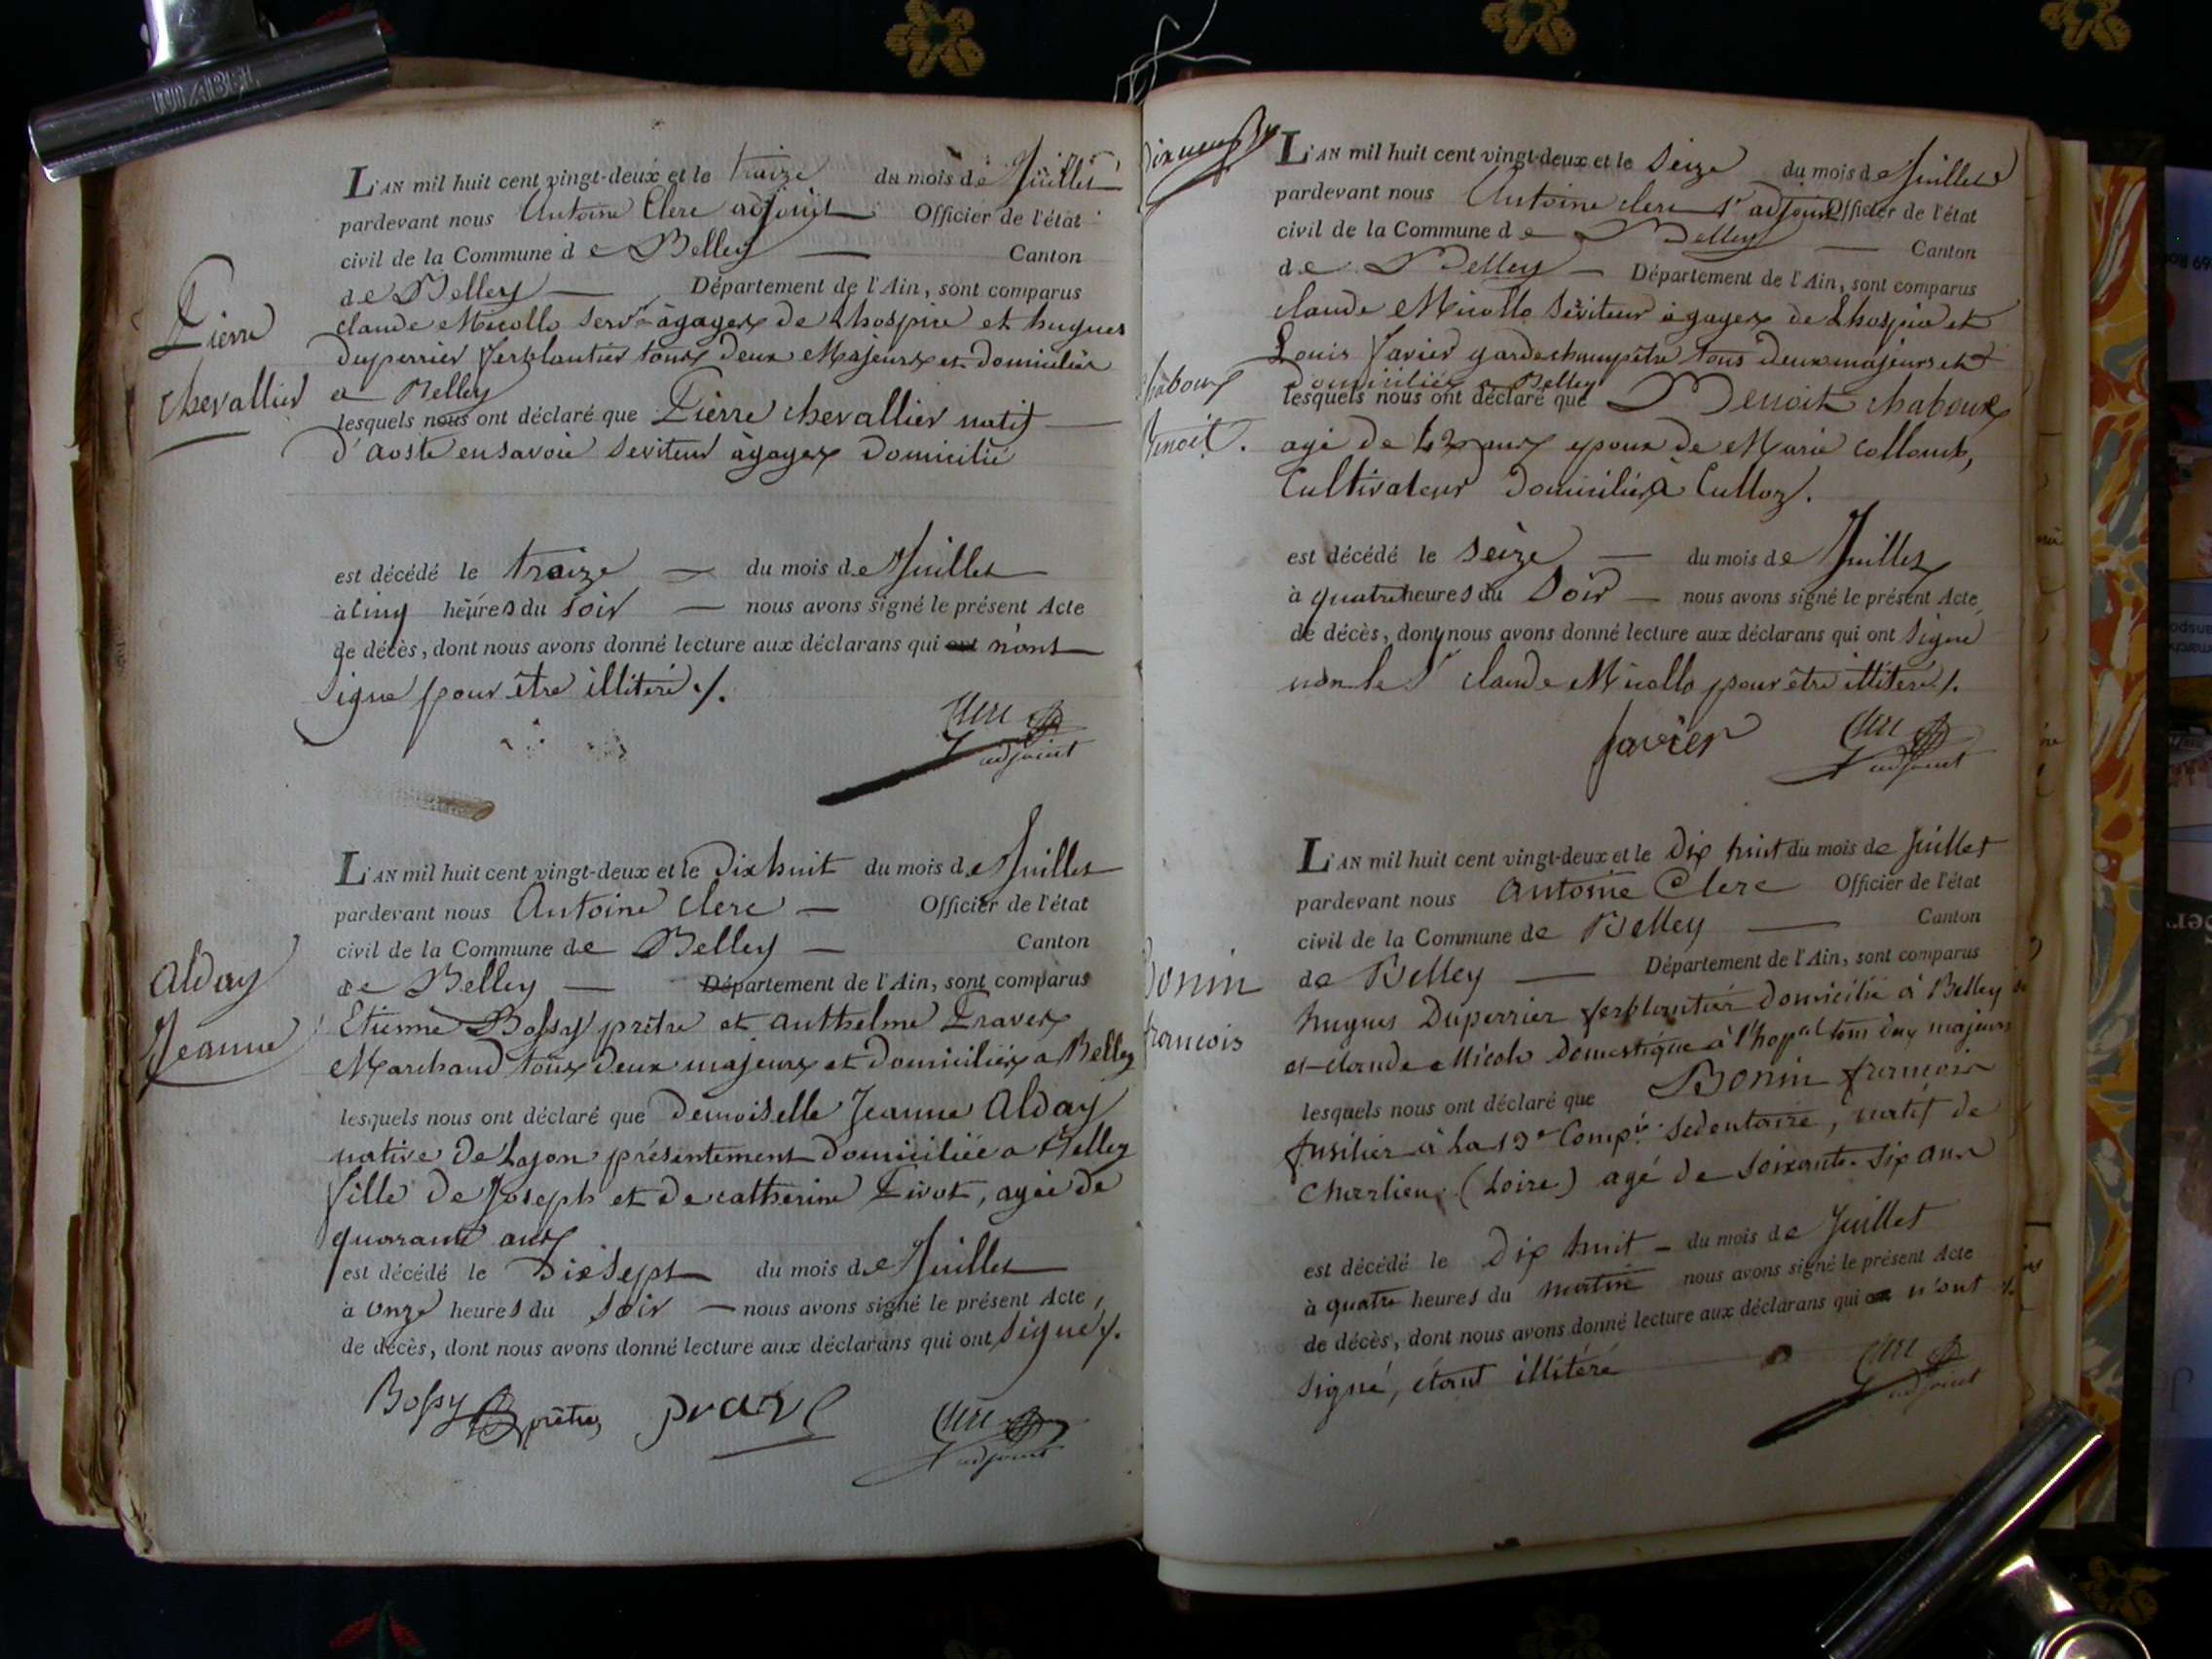 L'AN mil huit cent vingt-deux et le traize du mois de Juillet
pardevant nous Antoine Clerc adjoint Officier de l'état
civil de la Commune de Belley — Canton
de Belley — Département de l'Ain, sont comparus
claude Micollo serv.r àgages de Lhospice et hugues
Duperrier ferblantier tous deux Majeurs et domiciliés
a Belley
Pierre
chevallier
lesquels nous ont déclaré que Pierre chevallier natif
d'aoste en savoie seviteur àgages domicilié
est décédé le traize — du mois de Juillet
à cinq heures du soir — nous avons signé le présent Acte
de décès, dont nous avons donné lecture aux déclarans qui ont n'ont
signe pour être illiteré ./.
Clerc
adjoint
L'AN mil huit cent vingt-deux et le dixhuit du mois de Juillet
pardevant nous Antoine clerc — Officier de l'état
civil de la Commune de Belley — Canton
de Belley — Département de l'Ain, sont comparus
Alday
Jeanne
Etienne Bossy prêtre et anthelme Pravex
Marchand tous deux majeurs et domiciliés a Belley
lesquels nous ont déclaré que demoiselle Jeanne Alday
native de présentement domiciliée a Belley
fille de Joseph et de catherine Pivot, agée de
quarante ans
est décédé le dixsept du mois de Juillet
à onze heures du soir — nous avons signé le présent Acte,
de décès, dont nous avons donné lecture aux déclarans qui ont signe ./.
Bossy prêtre
Clerc
adjoint
L'AN mil huit cent vingt-deux et le seize du mois de Juillet
pardevant nous Antoine clerc 1.r adjoint Officier de l'état
civil de la Commune de Belley — Canton
de Belley — Département de l'Ain, sont comparus
claude Micollo séviteur àgages de Lhospice et
Louis favier gardechampêtre tous deux majeurs et
domiciliés a Belley
chaboux
Benoit.
lesquels nous ont déclaré que Benoit chaboux
agé de 42 ans epoux de Marie collomb,
Cultivateur domicilié à Culloz.
est décédé le seize — du mois de Juillet
à quatre heures du soir — nous avons signé le présent Acte
de décès, dont nous avons donné lecture aux déclarans qui ont signe
non le S.r claude Micollo pour être illitéré ./.
favier Clerc
adjoint
L'AN mil huit cent vingt-deux et le dix huit du mois de Juillet
pardevant nous Antoine Clerc Officier de l'état
civil de la Commune de Belley — Canton
de Belley — Département de l'Ain, sont comparus
Bonin
francois
hugues Duperrier ferblantier domicilié à Belley
et claude Micolo domestique à l'hopal tous deux majeurs
lesquels nous ont déclaré que Bonin françois
fusilier à la 13e Compie sedentaire, natif de
Charlieu (Loire) agé de soixante-six ans
est décédé le dix huit — du mois de Juillet
à quatre heures du matin nous avons signé le présent Acte
de décès, dont nous avons donné lecture aux déclarans qui ont n'ont
signé, étant illitéré
Clerc
adjoint